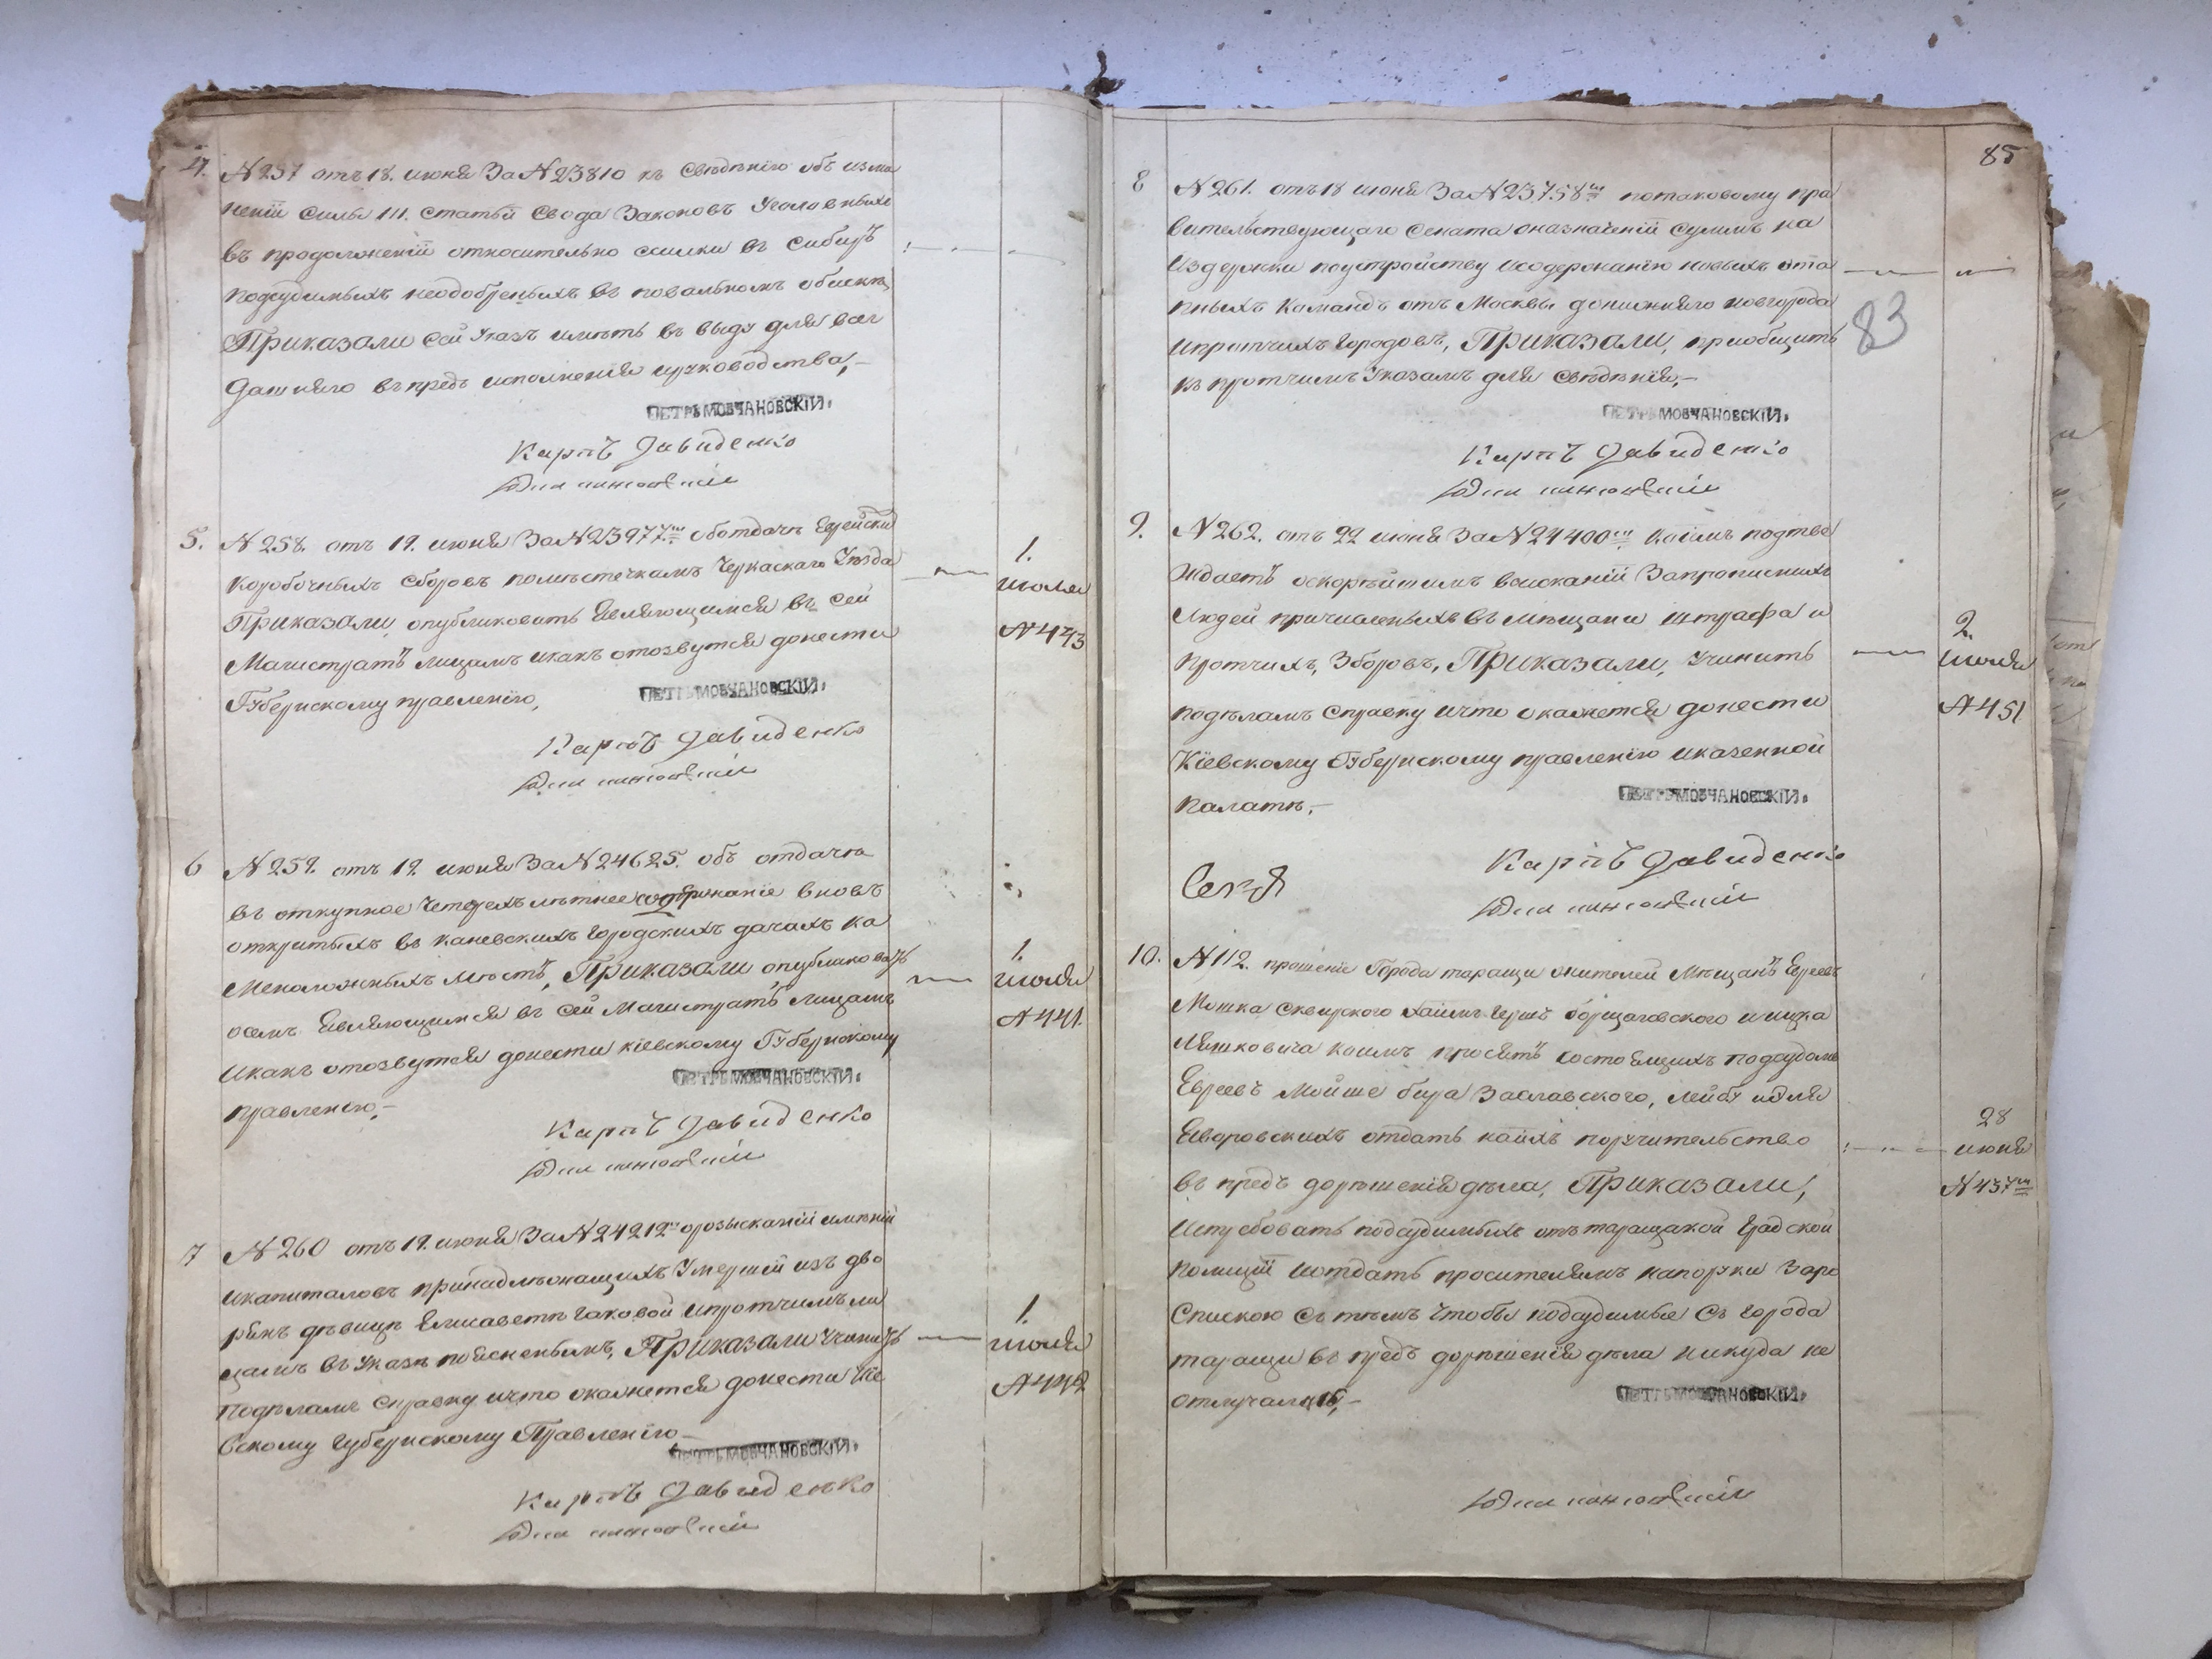 4. N 257 отъ 18. июня За N 23810 къ свѣдѣнію объ изме
неніи силы 111. статьи Свода Законовъ Уголовныхъ
въ продолженіи относительно ссилки въ Сибирь
подсудимыхъ неодобреныхъ въ повальномъ обискѣ,
Приказали сей Указъ имѣть въ виду для вал
дашняго въпредь исполненія ируководства,-
ПЕТРЪ МОВЧАНОВСКІЙ.
Карпъ Давиденко
5. N 258. отъ 19. июня За N 23977 оботдачѣ Еврейски
коробочныхъ сборовъ помѣстечкамъ Черкаскаго Уѣзда
Приказали, опубликовать Евляющимся въ сей
Магистратъ лицамъ икакъ отозвутся донести
Губернскому правленію,
1.
июля
N 443
ПЕТРЪ МОВЧАНОВСКІЙ.
Карпъ Давиденко
6 N 259. отъ 19. июня За N 24625. объ отдачѣ
въ откупное четерехълѣтнее содержаніе вновъ
откритыхъ въ каневскихъ городскихъ дачахъ ка
меналожныхъ мѣстъ, Приказали опубликовать
осемъ Евляющимся въ сей Магистратъ лицамъ
икакъ отозвутся донести кіевскому Губернскому
правленію,-
1.
июля
N 441.
ПЕТРЪ МОВЧАНОВСКІЙ.
Карпъ Давиденко
7 N 260 отъ 19. июня За N 24212 орозысканіи имѣній
икапиталовъ принадлѣжащихъ Умершей изъ дво
рянъ дѣвицѣ Елисаветѣ Гаковой ипротчимъ ли
цамъ въ Указѣ поясненымъ, Приказали учинить
подѣламъ справку ичто окажется донести Кіе
вскому Губернскому Правленію-
1.
июля
N 442
ПЕТРЪ МОВЧАНОВСКІЙ.
Карпъ Давиденко
85
83
8 N 261. отъ 18 июня За N 23758 потаковому пра
вительствующаго Сената оназначеніи суммъ на
Издержки поустройству исодержанію новыхъ эта
пныхъ Командъ отъ Москвы донижняго новгорода
ипротчихъ городовъ, Приказали, приобщить
къ протчимъ Указамъ для свѣдѣнія,-
ПЕТРЪ МОВЧАНОВСКІЙ.
Карпъ Давиденко
9. N 262. отъ 22 июня За N 24400 коимъ подтве
ждаетъ оскорѣйшемъ взисканіи Запрописнихъ
людей причисленыхъ въ мѣщани штрафа и
протчихъ, Зборовъ, Приказали, Учинить
подѣламъ справку ичто окажется донести
Кіевскому Губернскому правленію иказенной
палатѣ.-
2.
июля
N 451
ПЕТРЪ МОВЧАНОВСКІЙ.
Карпъ Давиденко
10. N 112. прошеніе Города таращи жителей Мѣщанъ Евреевъ
Мошка Сквирского Хаимъ Герша борщаговского ицка
Лѣшковича коимъ просятъ состоещихъ подсудомъ
Евреевъ Мойше бера Заславского,
Еворовскихъ отдать наихъ поручительство
въ предъ дорѣшенія дѣла, Приказали,
Истребовать подсудимыхъ отъ таращакой Градской
полиціи иотдать просителямъ напоруки Заро
спискою съ тѣмъ чтобы подсудимые съ города
таращи въ предъ дорѣшенія дѣла никуда не
отлучались,-
28
июня
N 437
ПЕТРЪ МОВЧАНОВСКІЙ.